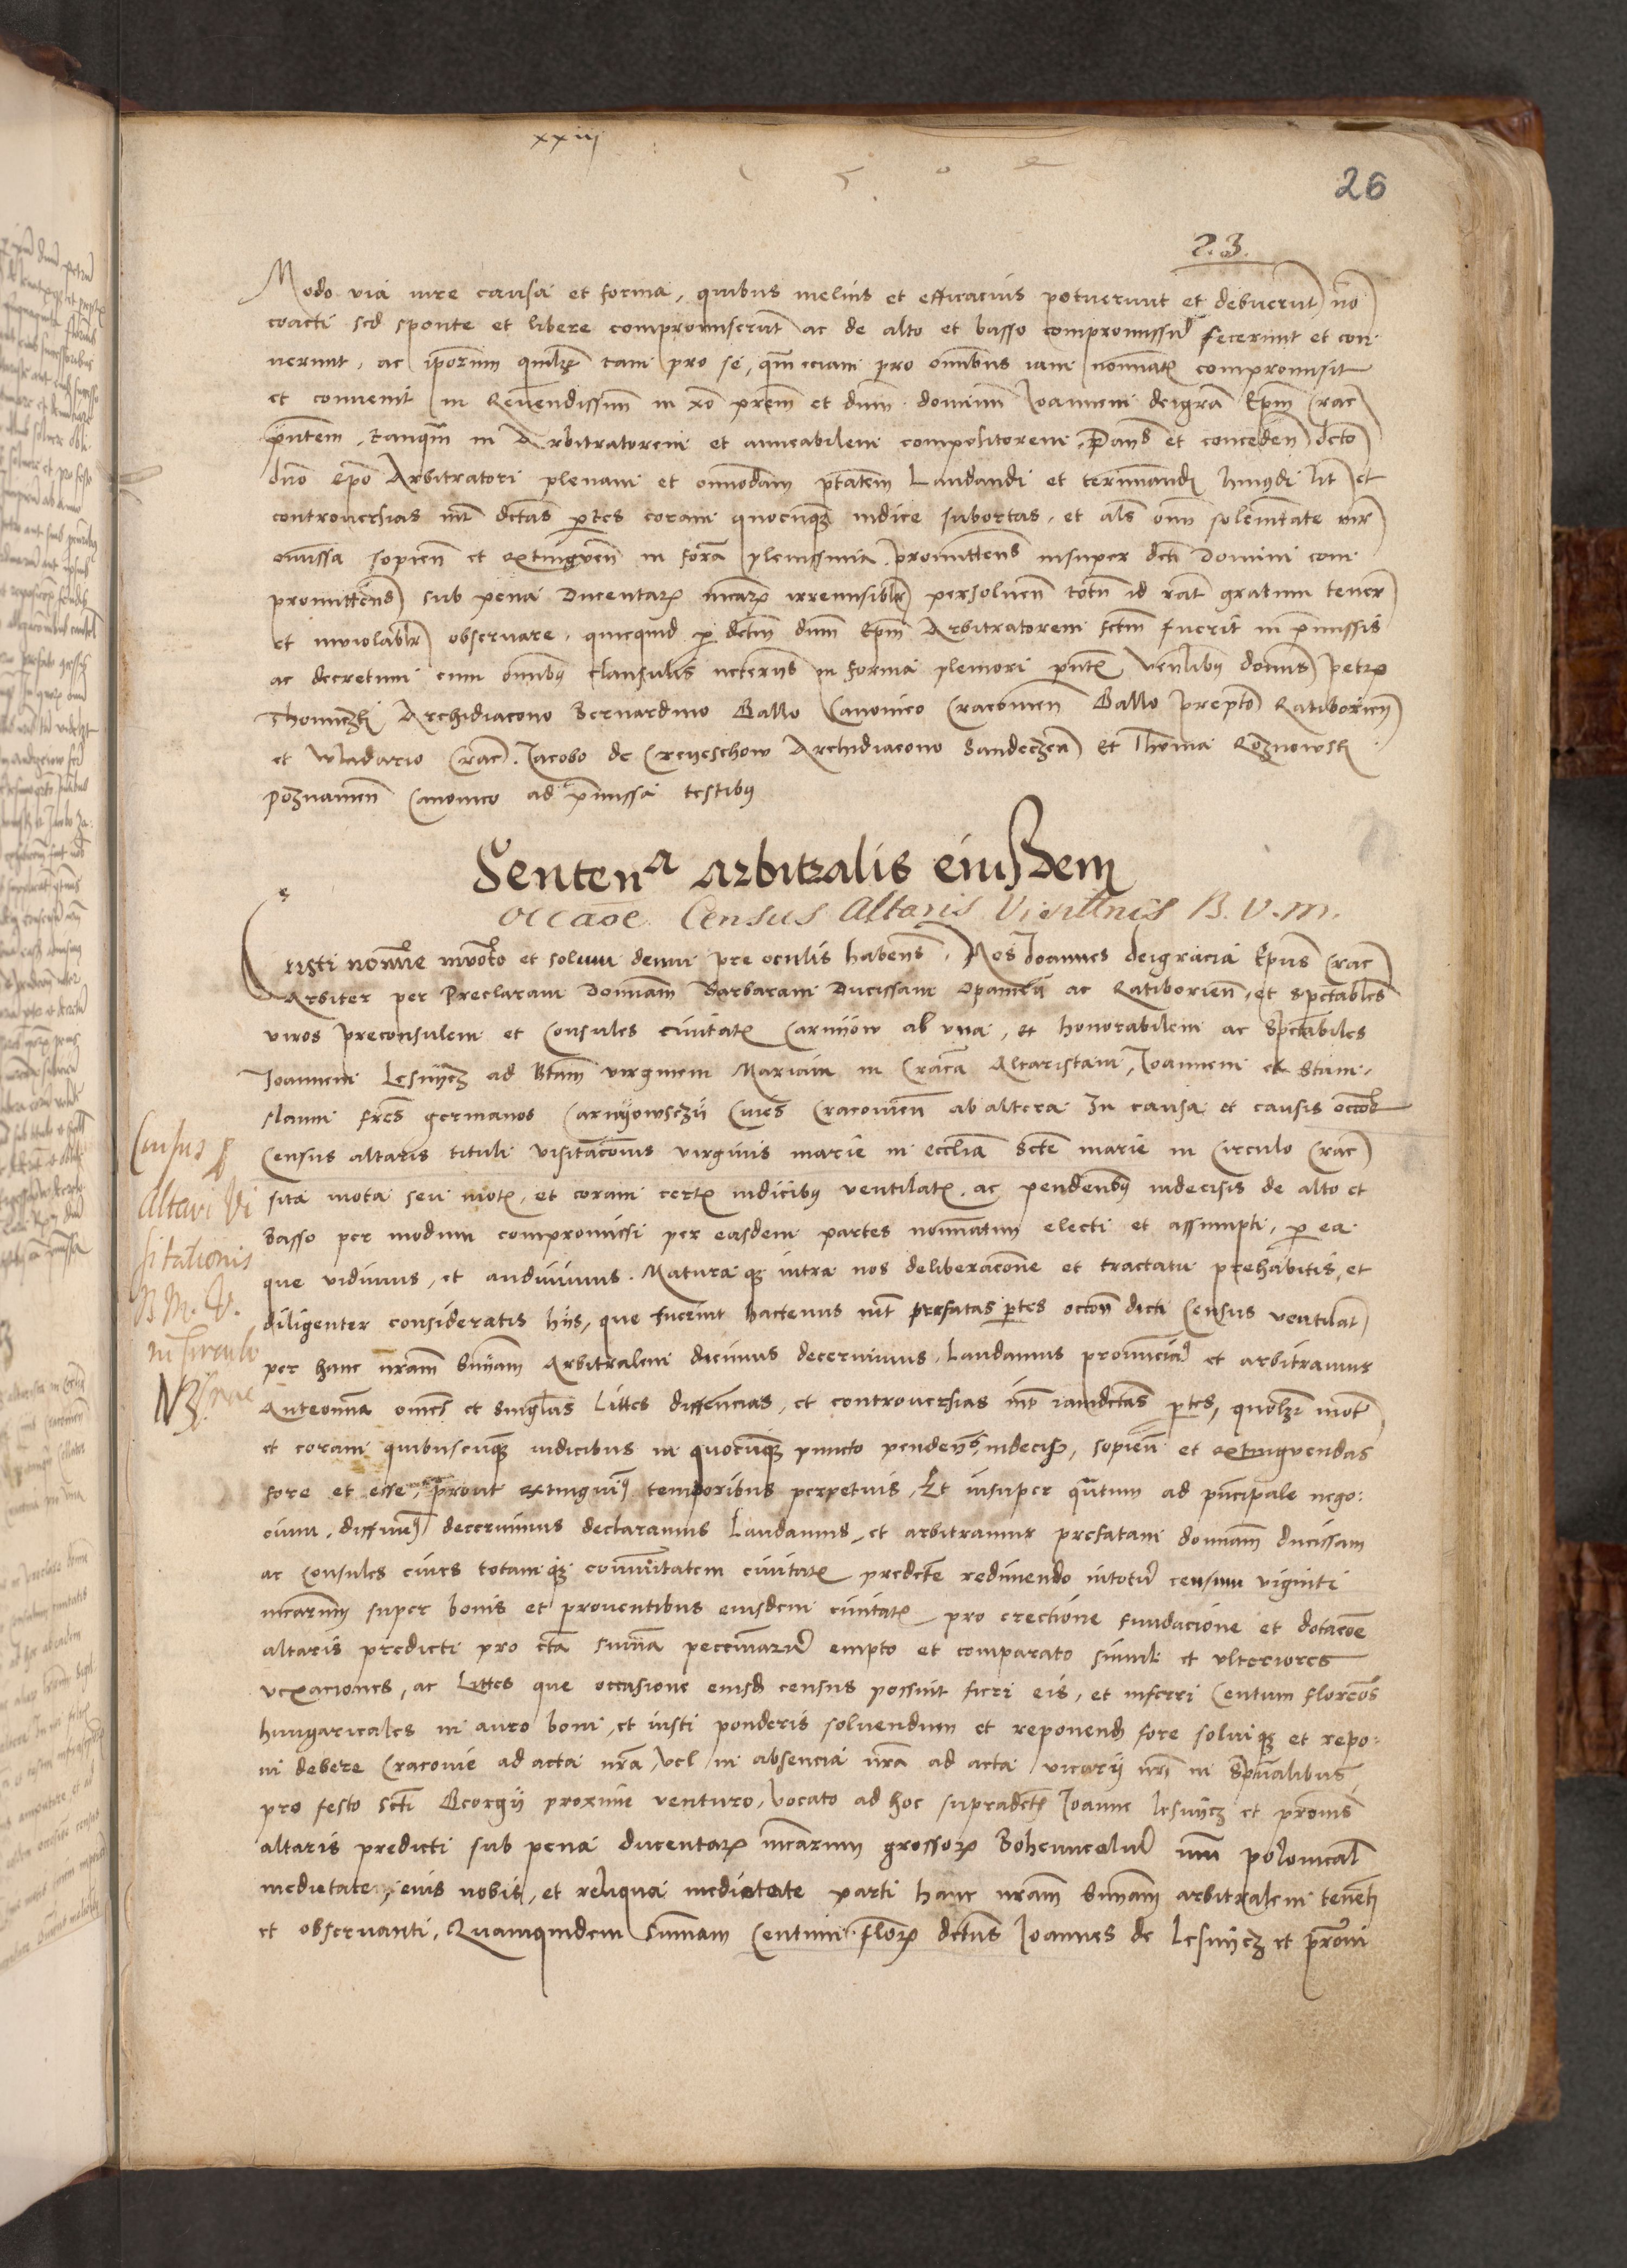 xxiij
26
23.
Modo via iure causa et forma, quibus melius et efficacius potuerunt et debuerut no
coacti sed sponte et libere compromiserut ac de alto et basso compromissu fecerunt et con
venerunt, ac iporum quilz tam pro se, qm eciam pro omnibus iam nominatz compromisit
et convenit in Reuendissimu in xo prem et dnm dominu Joannem deigra Epm Crac
pntem, tanqm in Arbitratorem et amicabilem compositorem, Dans et conceden dcto
dno Epo Arbitratori plenam et omnodam ptatem Laudandi et terminandi hmodi lit et
controuersias int dctas ptes coram quocunqz iudice subortas, et als omni solemnitate iur
omissa sopien et extinguen in forma plenissima. Promittens insuper dcti Domini com
promittens sub pena Ducentarz mcarz irremisiblr persoluen totu id rat gratum tener
et inviolablr obseruare, quicquid p dctm dnm Epm Arbitratorem fctm fuerit in pmissis
ac decretum cum omnibz clausulis ceteris in forma pleniori pntz venlibz dominis Petro
Thomiczki Archidiacono Bernardino Gallo Canonico Cracouien Gallo Prepto Ratiborien
et Wladario Crac. Jacobo de Creyeschow Archidiacono Sandeczen Et Thoma Roznowski
Poznanien Canonico ad pmissa testibz
Senten^a arbitralis eiusdem
occaoe Census Altaris Visitnis B. V. M.
Cristi nomine inuocto et solum deum pre oculis habens. Nos Joannes deigracia Epus Crac
Arbiter per Preclaram Dominam Barbaram Ducissam Opauien ac Ratiborien, et Spectabiles
viros Preconsulem et Consules ciuitatz Carnijow ab vna, et honorabilem ac Spectabiles
Joannem Lesnycz ad Btam virginem Mariam in Craca Altaristam, Joannem et Stani-
slaum fres germanos Carnijowsczii Ciues Cracouien ab altera In causa et causis occoe
Census altaris tituli visitacionis virginis marie in ecclia Scte marie in Circulo Crac
sita mota seu motz, et coram certz iudicibz ventilatz, ac pendenbz indecisis de alto et
Basso per modum compromissi per easdem partes nominatim electi et assumpti, p ea
que vidimus, et audiuimus. Matura qz intra nos deliberacione et tractatu prehabitis, et
diligenter consideratis hijs, que fuerunt hactenus int prefatas ptes occon dicti Census ventilat
per hanc nram Sniam Arbitralem dicimus decernimus, Laudamus pronunciam et arbitramur
Anteomnia omes et singlas Littes differencias, et controuersias int iamdctas ptes, quolz mot
et coram quibuscuqz iudicibus in quocuqz puncto pendens, indecis, sopien et extinguendas
fore et esse, prout extinguim temporibus perpetuis, Et insuper qntum ad pncipale nego:
cium, diffinim decernimus declaramus Laudamus, et arbitramur prefatam dominam ducissam
ac Consules ciues totamqz communitatem ciuitatz predcte redimendo intotu censum viginti
mcarum super bonis et prouentibus eiusdem ciuitatz pro erectione fundacione et dotacoe
altaris predicti pro cta summa pecuniaru empto et comparato simul et vlteriores
vexaciones, ac Littes que occasione eiusd census possunt fieri eis, et inferri Centum florenos
hungaricales in auro boni, et iusti ponderis soluendum et reponend fore soluiqz et repo:
ni debere Cracouie ad acta nra, vel in absencia nra ad acta vicarij nri in Spualibus
pro festo scti Georgij proxime venturo, vocato ad hoc supradctz Joanne Lesnycz et pronis
altaris predicti sub pena ducentarz mcarum grossorz Bohemicaliu nui polonical
medietate, eius nobis, et reliqua medietate parti hanc nram Sniam arbitralem tenen
et obseruanti, Quamquidem Summam Centum florz dctus Joannes de Lesnycz et proui
Census p
Altari Vi
sitationis
B. M. V.
in Circulo
NB